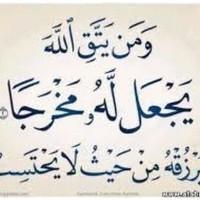 وَمَن يَتَّقِ اللَّهَ
يَجْعَل لَّهُۥ مَخْرَجًا
يَرْزُقْهُ مِنْ حَيْثُ لَا يَحْتَسِبُ